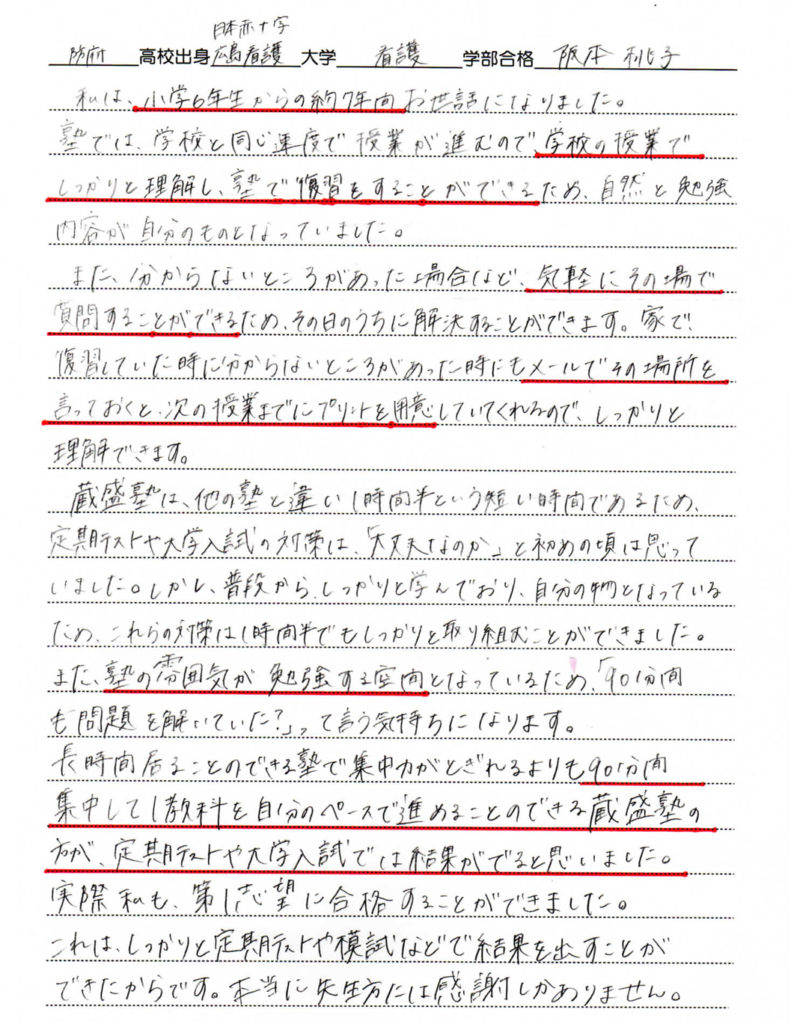 日本赤十字
防府 高校出身 広島看護 大学 看護 学部合格 阪本
私は、小学6年生からの約7年間お世話になりました。
塾では、学校と同じ速度で授業が進むので、学校の授業で
しっかりと理解し、塾で復習をすることができるため、自然と勉強
内容が自分のものとなっていました。
また、分からないところがあった場合など、気軽にその場で
質問することができるため、その日のうちに解決することができます。家で、
復習していた時に分からないところがあった時にもメールでその場所を
言っておくと、次の授業までにプリントを用意していてくれるので、しっかりと
理解できます。
蔵盛塾は、他の塾と違い1時間半という短い時間であるため、
定期テストや大学入試の対策は、「大丈夫なのか」と初めの頃は思って
いました。しかし、普段から、しっかりと学んでおり、自分の物となっている
ため、これらの対策は1時間半でもしっかりと取り組むことができました。
また、塾の雰囲気が勉強する空間となっているため、「90分間
も問題を解いていた?」って言う気持ちになります。
長時間居ることのできる塾で集中力がとぎれるよりも90分間
集中して1教科を自分のペースで進めることのできる蔵盛塾の
方が、定期テストや大学入試では結果がでると思いました。
実際私も、第1志望に合格することができました。
これは、しっかりと定期テストや模試などで結果を出すことが
できたからです。本当に先生方には感謝しかありません。